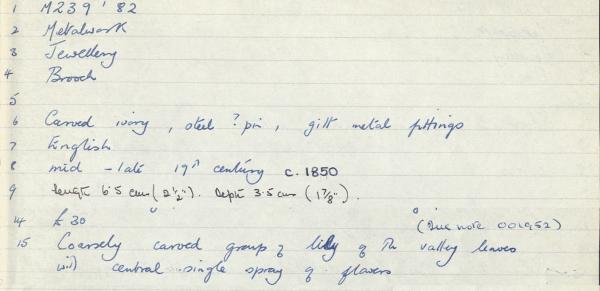 1 M239 '82
2 Metalwork
3 Jewellery
4 Brooch
5
6 Carved ivory, steel ? pin, gilt metal fittings
7 English
8 mid - late 19th century c. 1850
9 length 6.5 cm (2½"). Depth 3.5 cm (1⅞").
14 £30 (note 001952)
15 Coarsely carved group of lily of the valley leaves
with central single spray of flowers